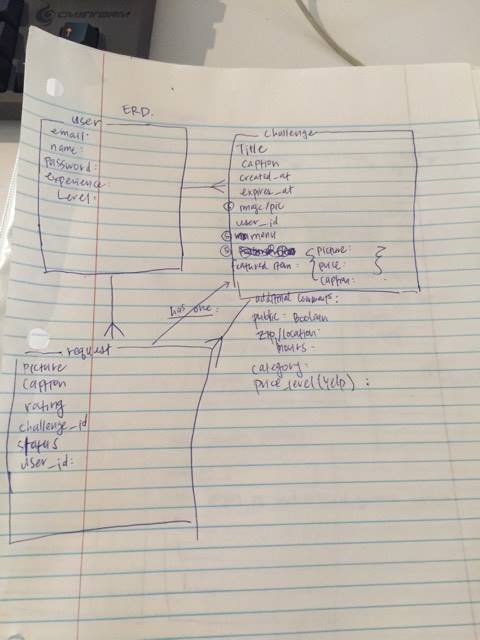 ERD.
user
email:
name:
password:
experience:
Level:
Challenge
Title
caption
created_at
expires_at
image/pic
user_id
menu
featured item: { picture: }
price:
caption:
has one:
additional comments:
public: Boolean
zip/location:
hours:
category:
price_level (yelp):
request
picture
caption
rating
challenge_id
status
user_id: